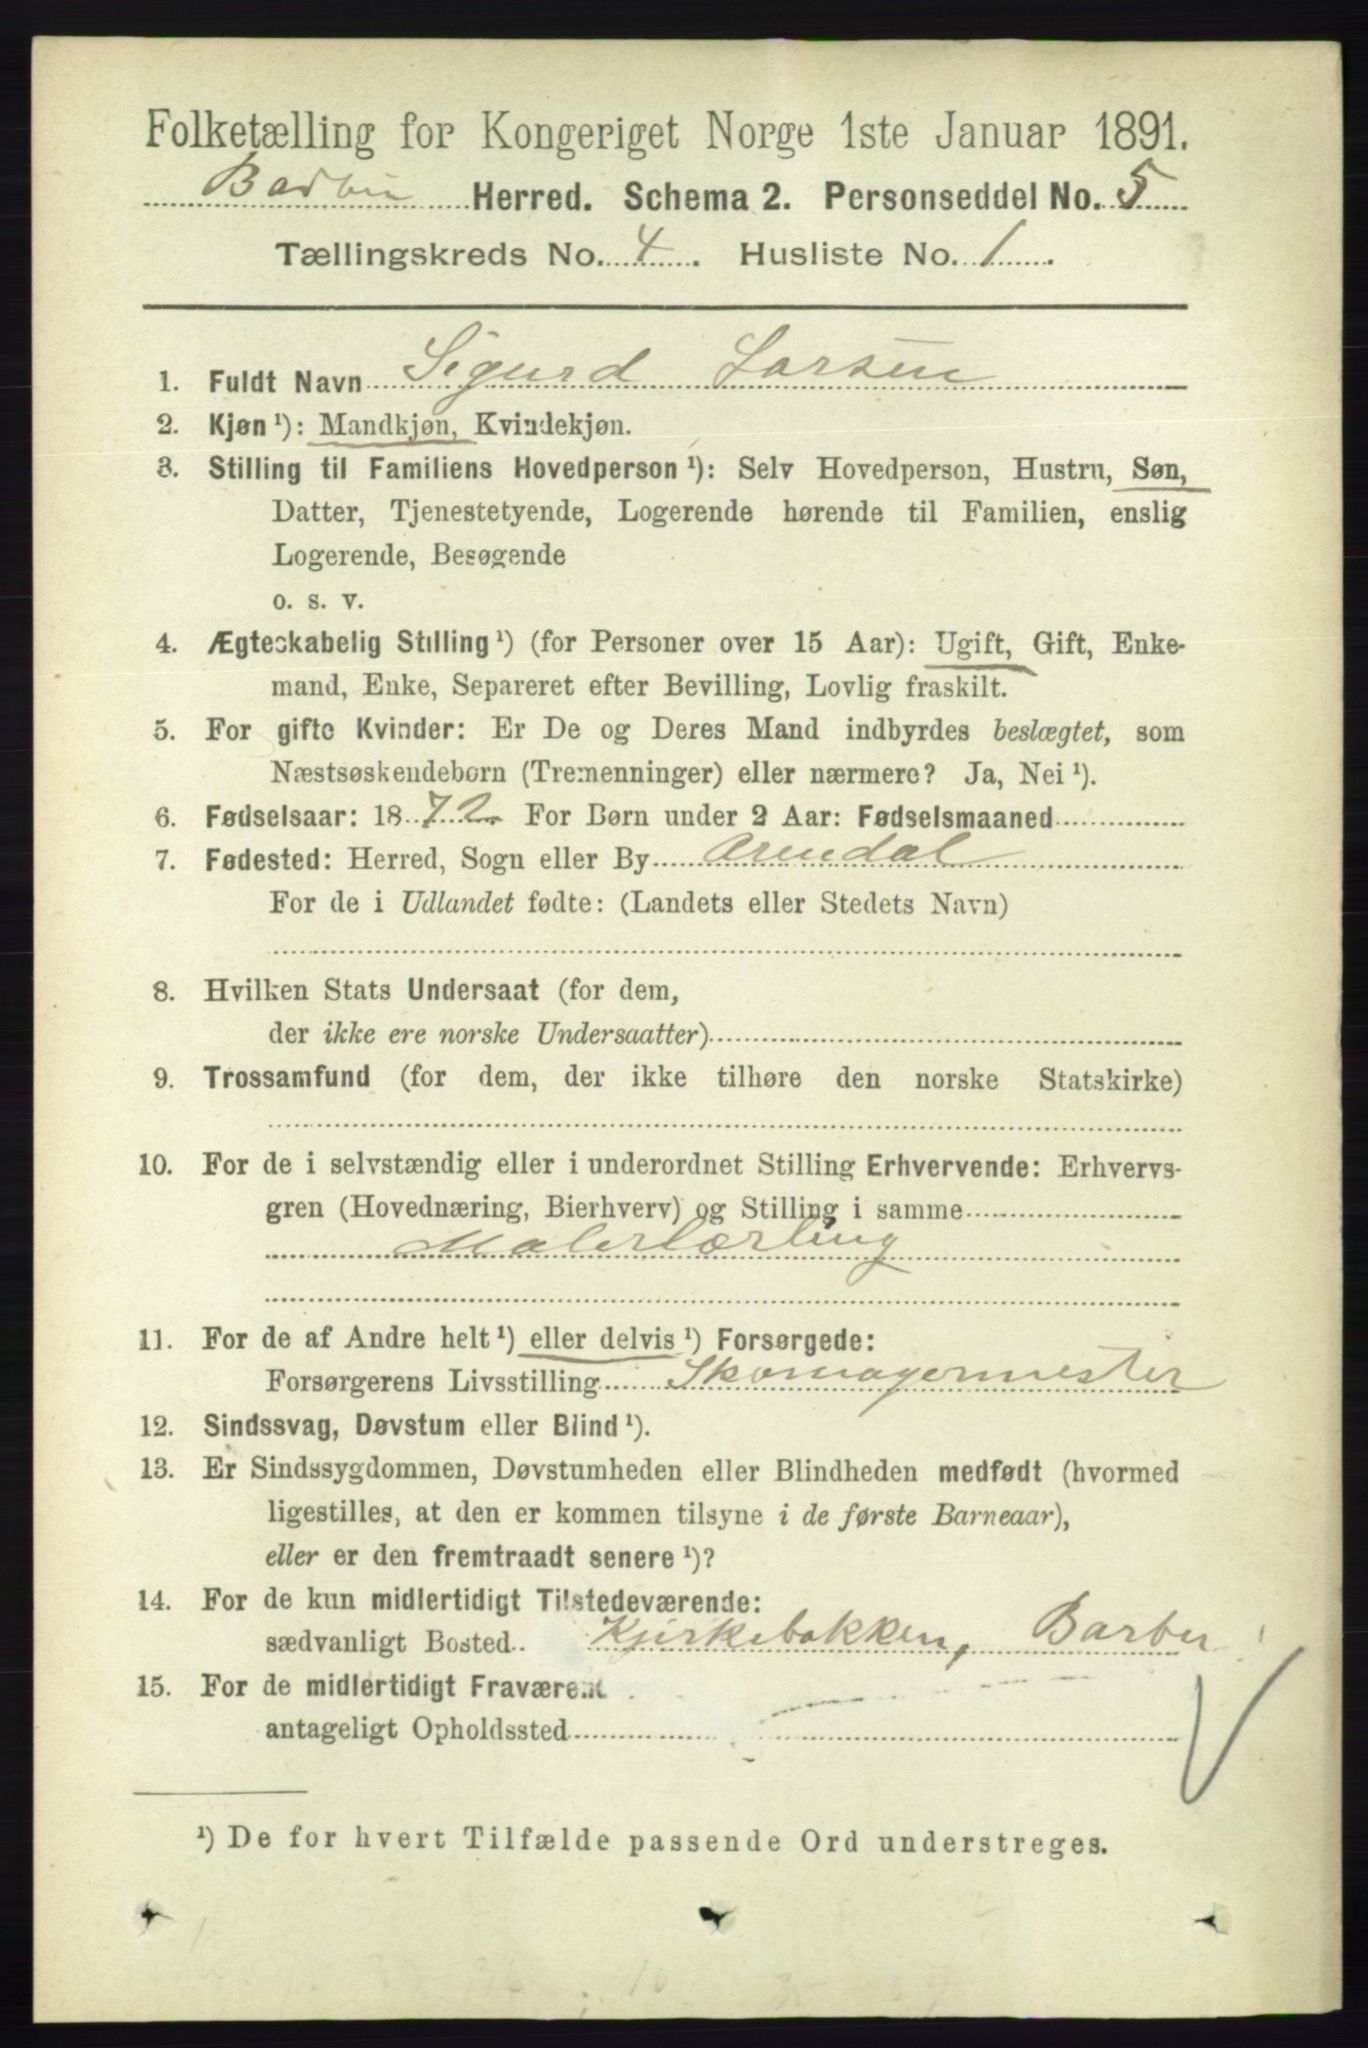 Folketælling for Kongeriget Norge 1ste Januar 1891.
Barbu Herred. Schema 2. Personseddel No. 5
Tællingskreds No. 4. Husliste No. 1.
1. Fuldt Navn Sigurd Larsen
2. Kjøn ¹): Mandkjøn, Kvindekjøn.
3. Stilling til Familiens Hovedperson ¹): Selv Hovedperson, Hustru, Søn,
Datter, Tjenestetyende, Logerende hørende til Familien, enslig
Logerende, Besøgende
o. s. v.
4. Ægteskabelig Stilling ¹) (for Personer over 15 Aar): Ugift, Gift, Enke-
mand, Enke, Separeret efter Bevilling, Lovlig fraskilt.
5. For gifte Kvinder: Er De og Deres Mand indbyrdes beslægtet, som
Næstsøskendebørn (Tremenninger) eller nærmere? Ja, Nei ¹).
6. Fødselsaar: 1872. For Børn under 2 Aar: Fødselsmaaned
7. Fødested: Herred, Sogn eller By Arendal
For de i Udlandet fødte: (Landets eller Stedets Navn)
8. Hvilken Stats Undersaat (for dem,
der ikke ere norske Undersaatter)
9. Trossamfund (for dem, der ikke tilhøre den norske Statskirke)
10. For de i selvstændig eller i underordnet Stilling Erhvervende: Erhvervs-
gren (Hovednæring, Bierhverv) og Stilling i samme
Malerlærling
11. For de af Andre helt ¹) eller delvis ¹) Forsørgede:
Forsørgerens Livsstilling Skomagermester
12. Sindssvag, Døvstum eller Blind ¹).
13. Er Sindssygdommen, Døvstumheden eller Blindheden medfødt (hvormed
ligestilles, at den er kommen tilsyne i de første Barneaar),
eller er den fremtraadt senere ¹)?
14. For de kun midlertidigt Tilstedeværende:
sædvanligt Bosted Kjirkebakken, Barbu
15. For de midlertidigt Fraværen
antageligt Opholdssted
¹) De for hvert Tilfælde passende Ord understreges.